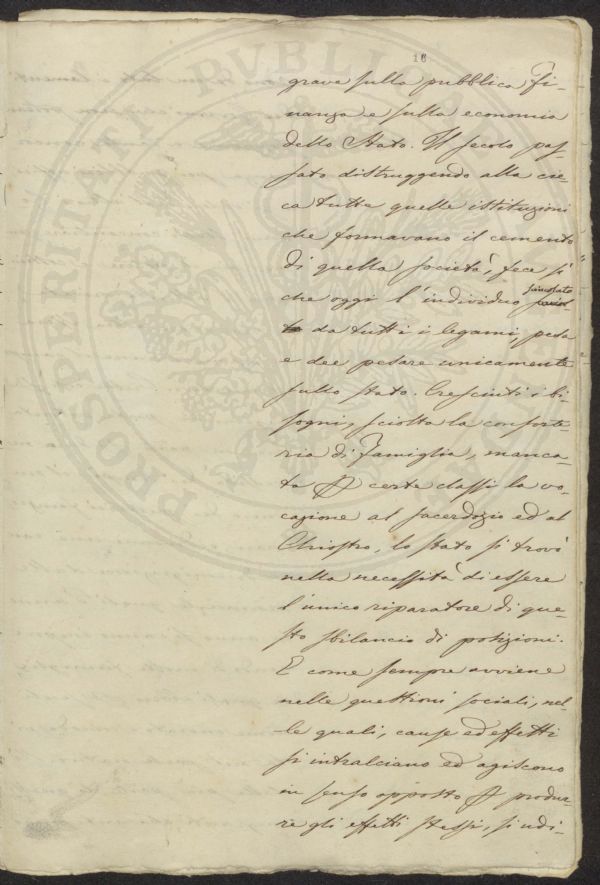 18
grave sulla pubblica Fi-
nanza e sulla economia
dello Stato. Il secolo pas-
sato distruggendo alla cie-
ca tutte quelle istituzioni
che formavano il cemento
di quella società, fece sì
che oggi l'individuo svincolato
da tutti i legami, pesa
e dee pesare unicamente
sullo stato. Cresciuti i bi-
sogni, sciolta la consorte-
ria di Famiglia, manca-
ta p certe classi la vo-
cazione al sacerdozio ed al
Chiostro, lo stato si trovò
nella necessità di essere
l'unico riparatore di que-
sto sbilancio di posizioni.
E come sempre avviene
nelle questioni sociali, nel-
le quali, cause ed effetti
si intralciano ed agiscono
in senso opposto p produr-
re gli effetti stessi, si udi-
PROSPERITATI PVBLICAE